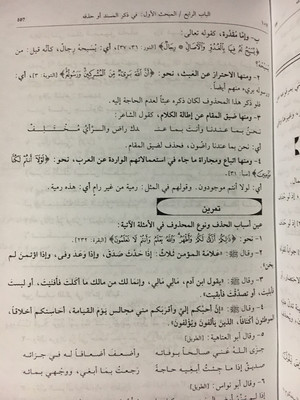 الباب الرابع / المبحث الأول: في ذكر المسند أو حذفه
ب- وإمّا مقدّرة، كقوله تعالى:
﴿يُسَبِّحُ لَهُ فِيهَا بِالْغُدُوِّ وَالْآصَالِ ۝ رِجَالٌ﴾ [النور: ٣٦، ٣٧]، أي: يُسَبِّحُهُ رِجَالٌ، كأنّه قيل: من
٢- ومنها الاحتراز عن العبث، نحو: ﴿أَنَّ اللَّهَ بَرِيءٌ مِنَ الْمُشْرِكِينَ وَرَسُولُهُ﴾ [التوبة: ٣]، أي:
فلو ذكر هذا المحذوف لكان ذكره عبثًا لعدم الحاجة إليه.
٣- ومنها ضيق المقام عن إطالة الكلام، كقول الشاعر:
نحن بما عندنا وأنت بما عندك راض والرأي مختلف
أي: نحن بما عندنا راضون، فحذف لضيق المقام.
٤- ومنها اتباع ومجاراة ما جاء في استعمالاتهم الواردة عن العرب، نحو: ﴿لَوْلَا أَنْتُمْ لَكُنَّا
مُؤْمِنِينَ﴾ [سبأ: ٣١].
أي: لولا أنتم موجودون. وقولهم في المثل: رمية من غير رامٍ أي: هذه رمية.
تمرين
عين أسباب الحذف ونوع المحذوف في الأمثلة الآتية:
١- نحو: ﴿ذَلِكُمْ أَزْكَى لَكُمْ وَأَطْهَرُ وَاللَّهُ يَعْلَمُ وَأَنْتُمْ لَا تَعْلَمُونَ﴾ [البقرة: ٢٣٢].
٢- وقال ﷺ: «علامة المؤمن ثلاث: إذا حدّث صدق، وإذا وعد وفى، وإذا اؤتمن لم
٣- وقال ﷺ: «يقول ابن آدم، مالي مالي، وإنما لك من مالك ما أكلت فأفنيت، أو لبست
أو تصدّقت فأبقيت».
٤- وقال ﷺ: «إنّ أحبّكم إليّ وأقربكم مني مجالس يوم القيامة، أحاسنكم أخلاقًا،
الموطئون أكنافًا، الذين يألفون ويُؤلفون».
٥- وقال أبو العتاهية: [الطويل]
جزى الله عني صالحًا بوفائه وأضعف أضعافًا له في جزائه
إذا ما جئت أبغيه حاجة رجعت بما أبغي، ووجهي بمائه
٦- وقال أبو نواس: [الطويل]